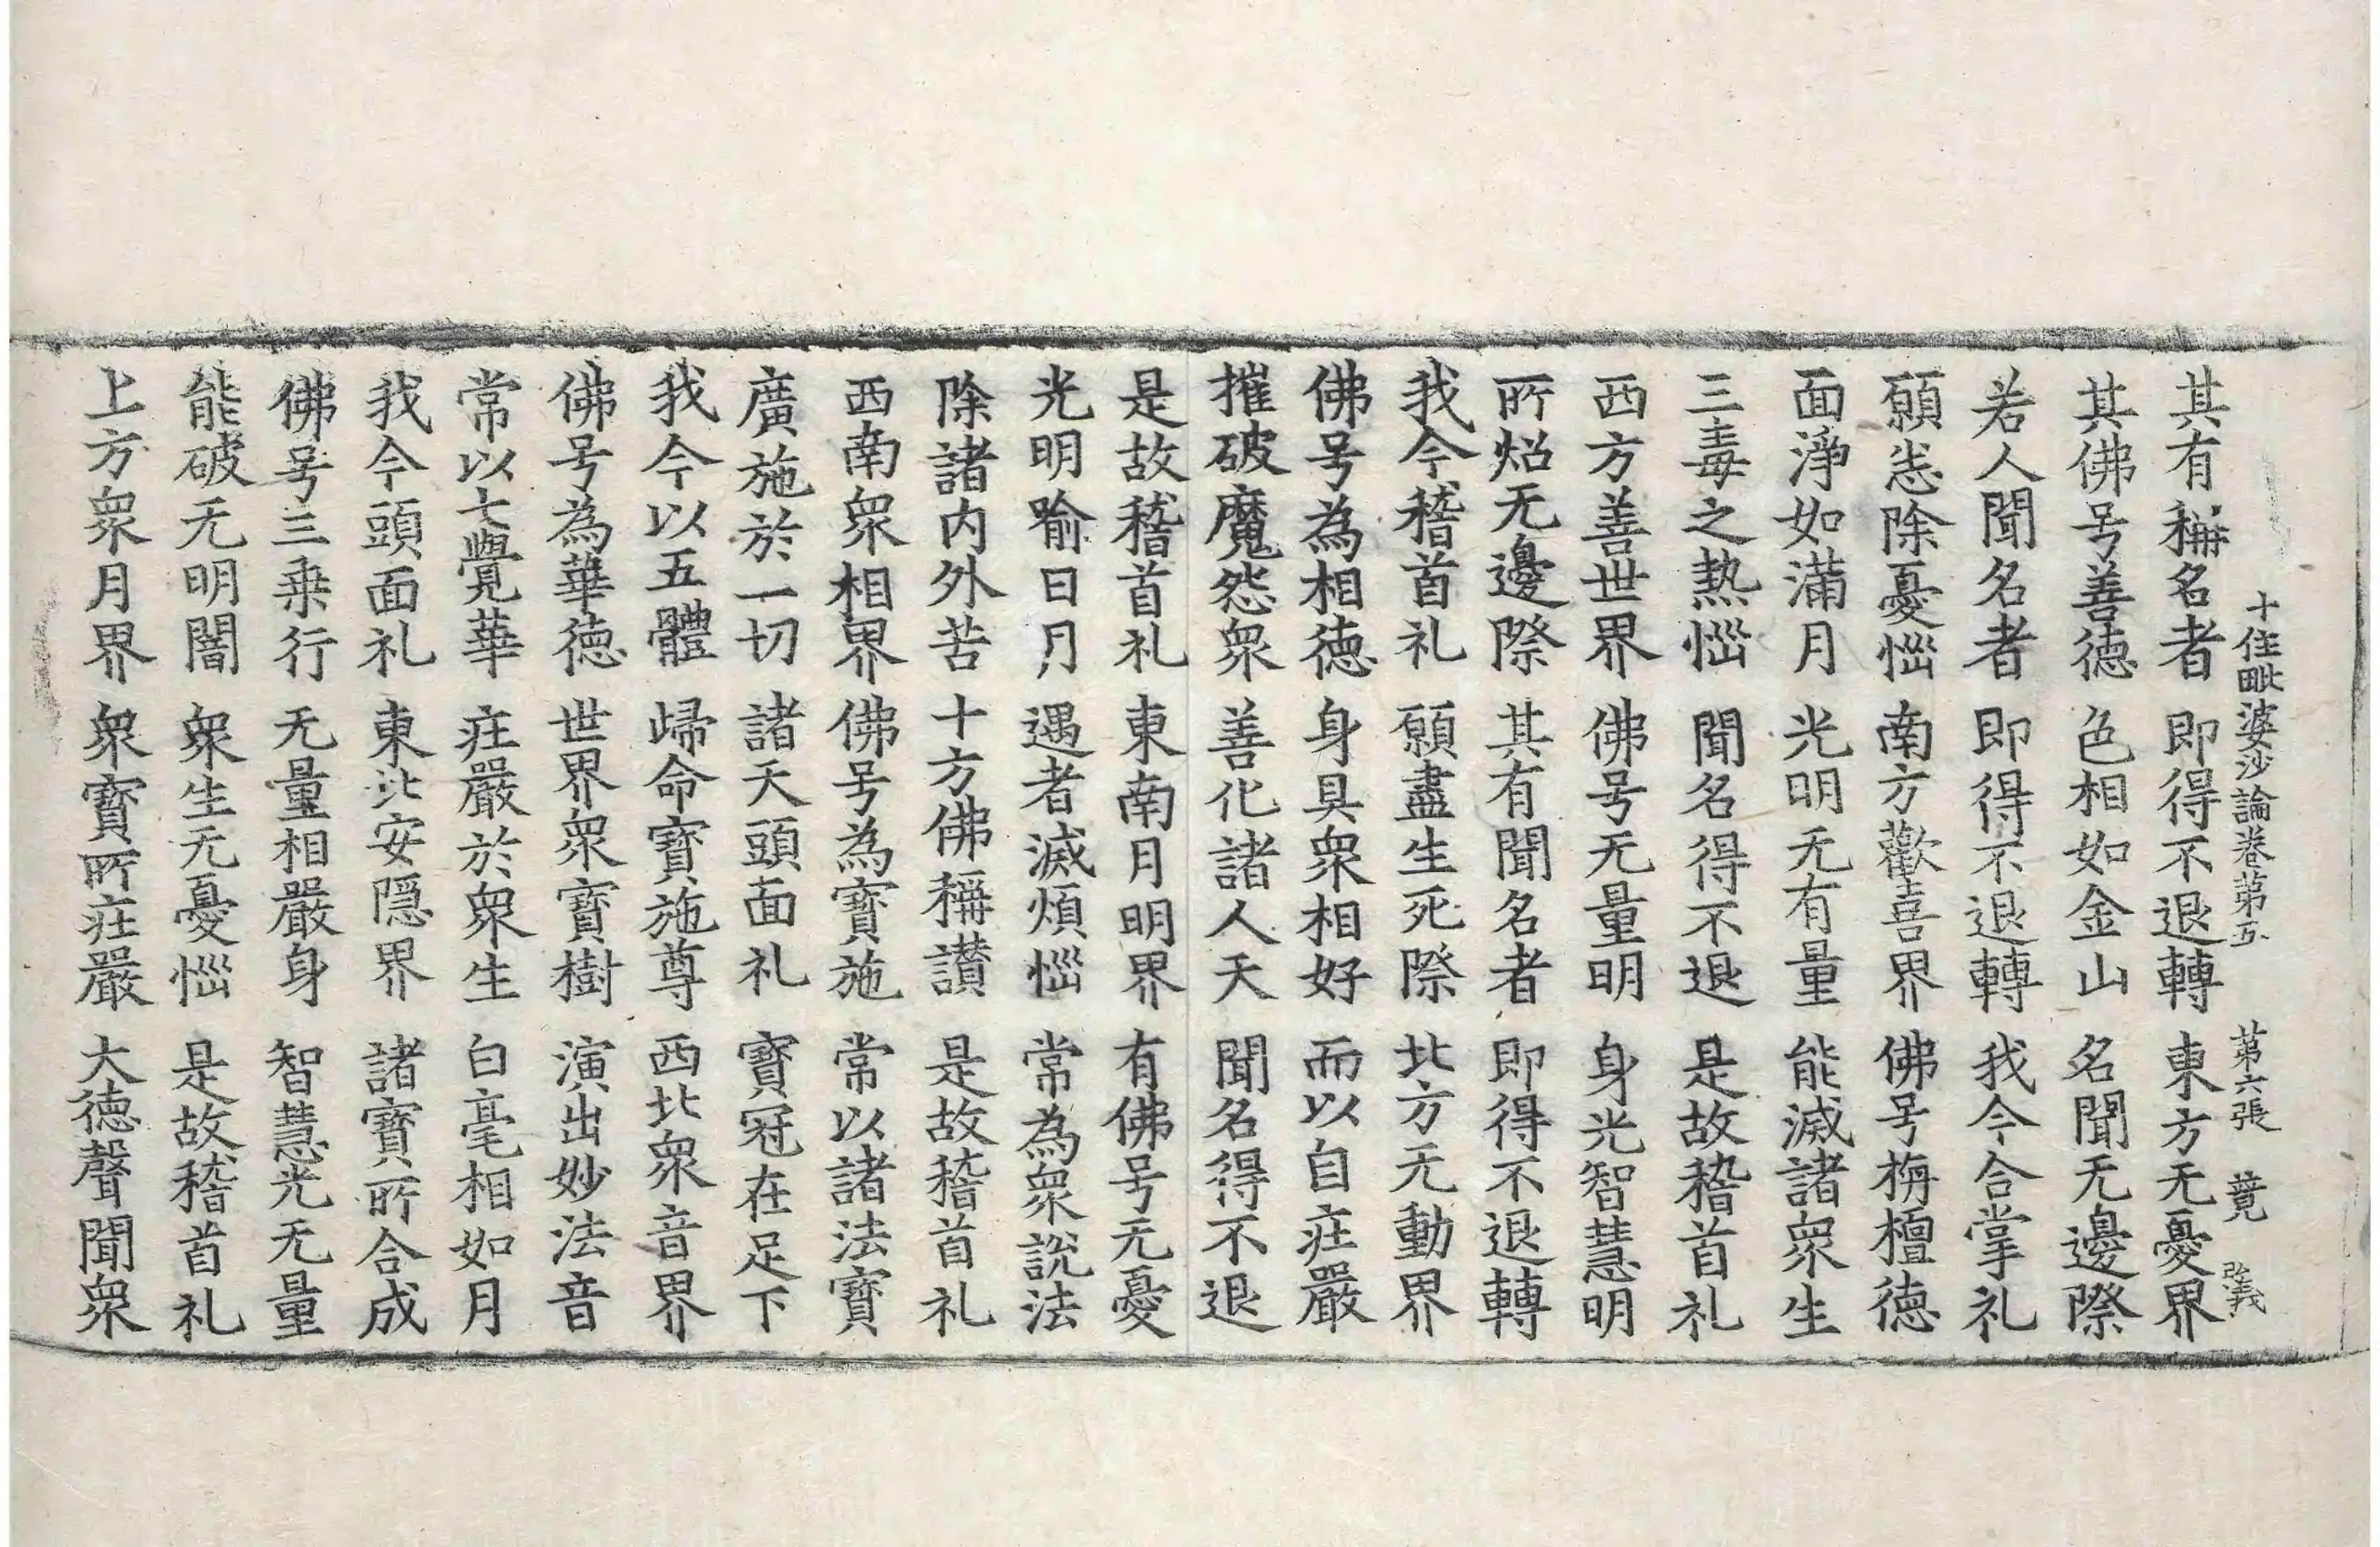 十住毗婆沙論卷第五　第六張　竟　改義
其有稱名者　即得不退轉　東方无憂界
其佛号善德　色相如金山　名聞无邊際
若人聞名者　即得不退轉　我今合掌礼
願悉除憂惱　南方歡喜界　佛号栴檀德
面淨如滿月　光明无有量　能滅諸衆生
三毒之熱惱　聞名得不退　是故稽首礼
西方善世界　佛号无量明　身光智慧明
所炤无邊際　其有聞名者　即得不退轉
我今稽首礼　願盡生死際　北方无動界
佛号為相德　身具衆相好　而以自莊嚴
摧破魔怨衆　善化諸人天　聞名得不退
是故稽首礼　東南月明界　有佛号无憂
光明喻日月　遇者滅煩惱　常為衆說法
除諸内外苦　十方佛稱讃　是故稽首礼
西南衆相界　佛号為寶施　常以諸法寶
廣施於一切　諸天頭面礼　寶冠在足下
我今以五體　歸命寶施尊　西北衆音界
佛号為華德　世界衆寶樹　演出妙法音
常以七覺華　莊嚴於衆生　白毫相如月
我今頭面礼　東北安隱界　諸寶所合成
佛号三乘行　无量相嚴身　智慧光无量
能破无明闇　衆生无憂惱　是故稽首礼
上方衆月界　衆寶所莊嚴　大德聲聞衆